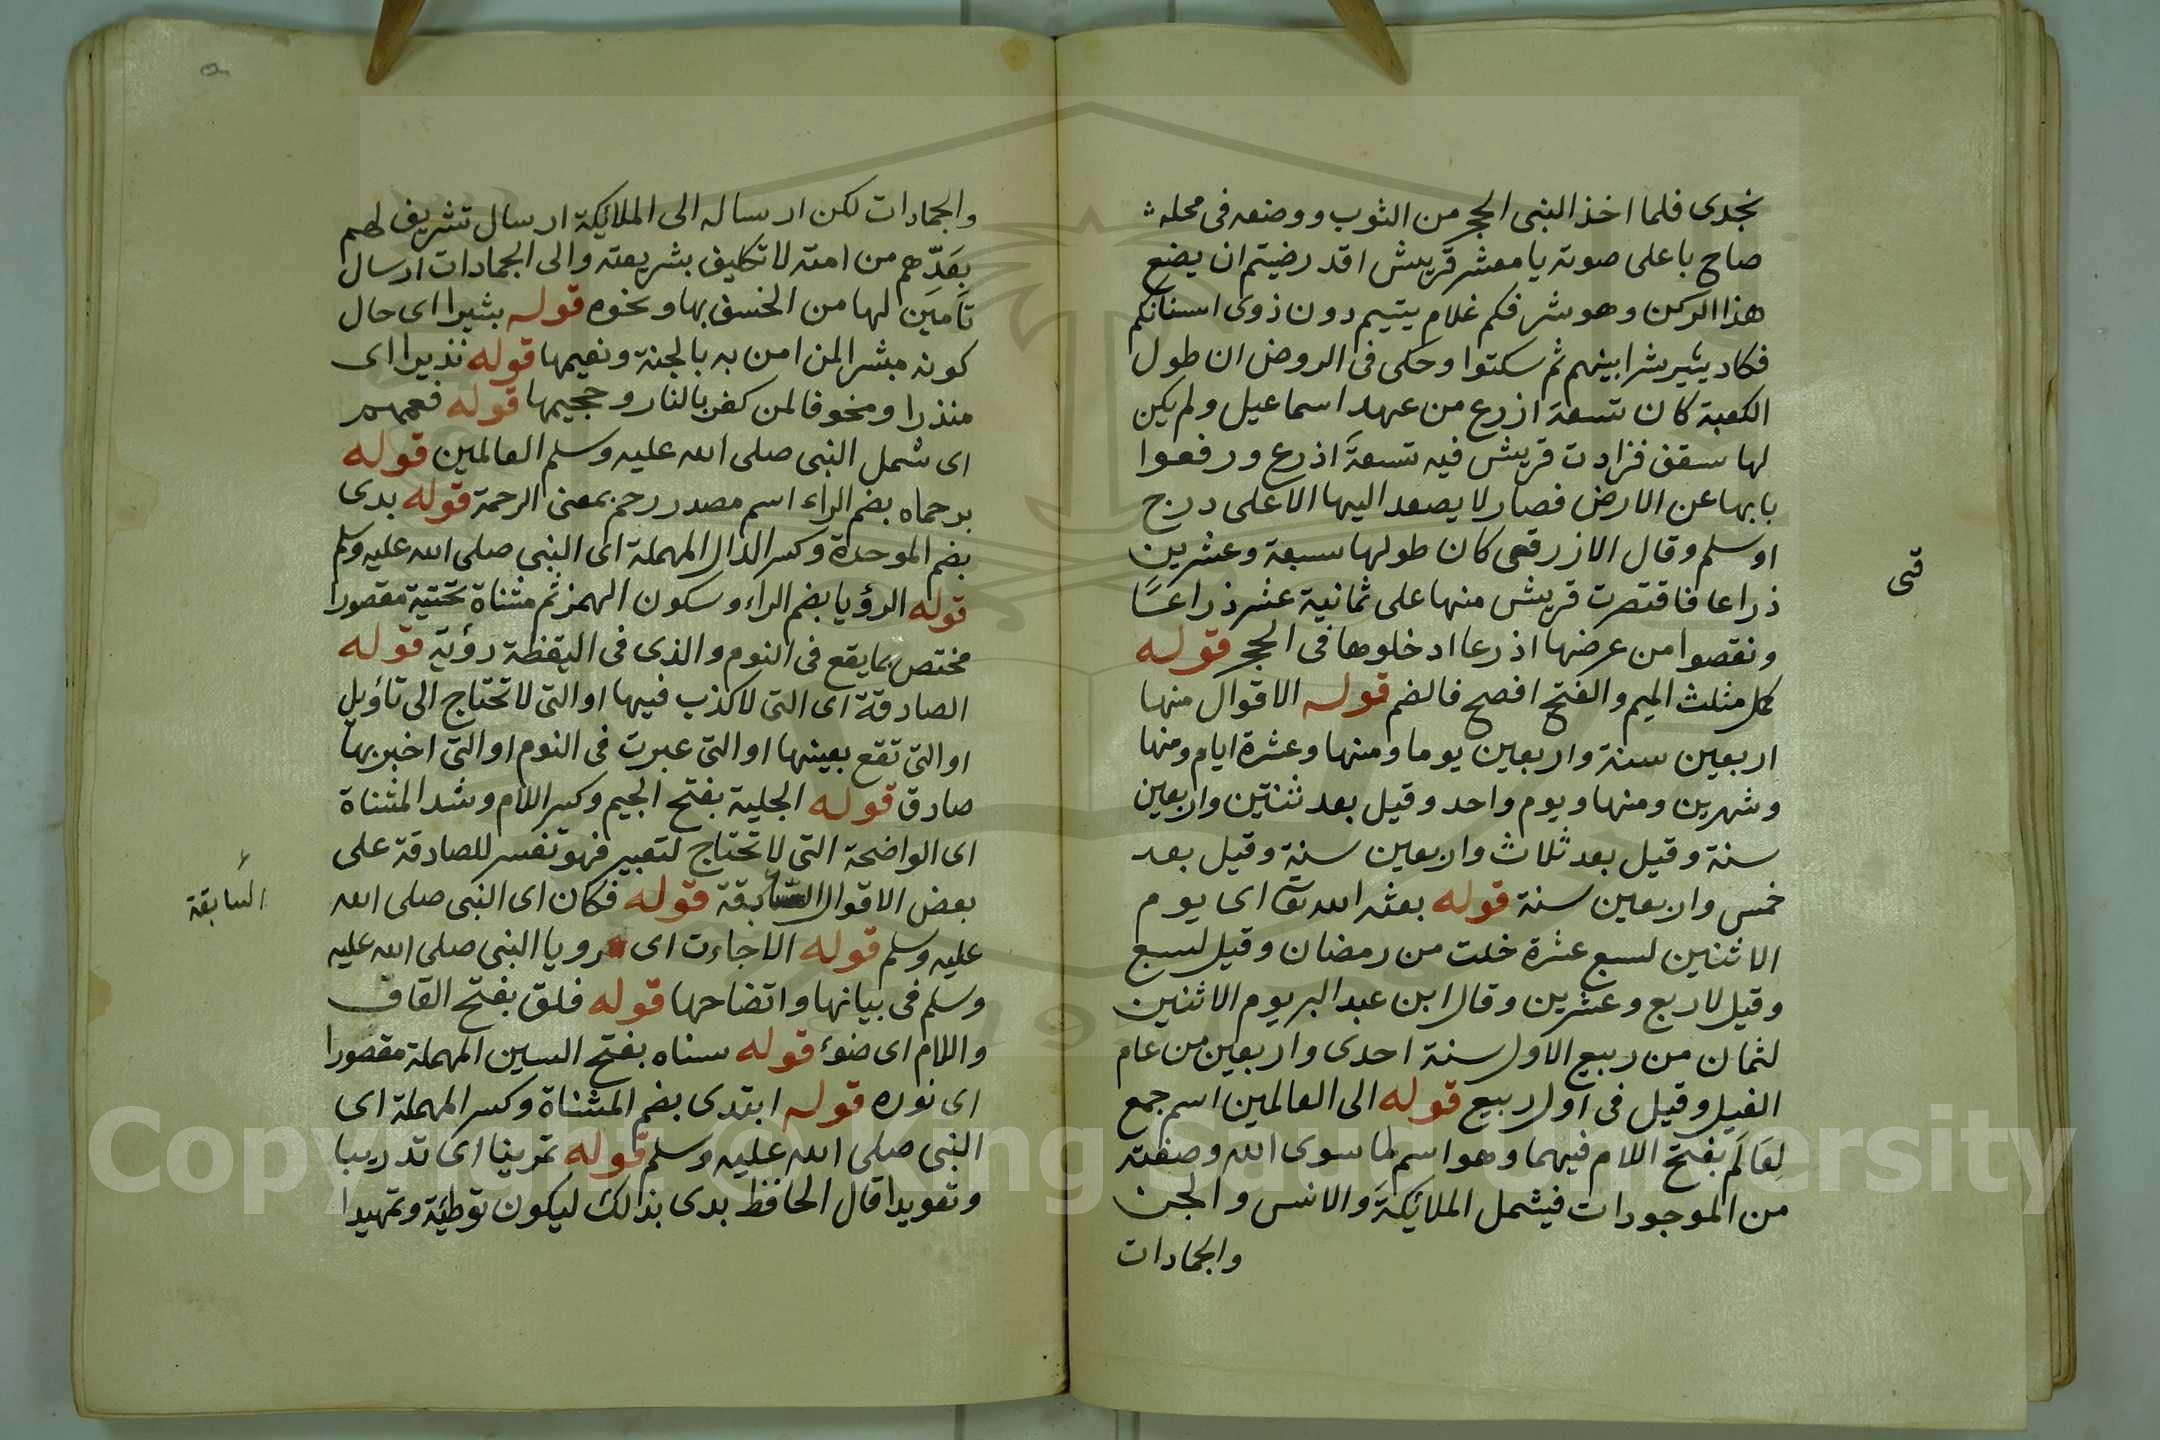 نجدى فلما اخذ النبى الحجر من الثوب ووضعه فى محله
صاح باعلى صوته يا معشر قريش اقد رضيتم ان يضع
هذا الركن وهو شرفكم غلام يتيم دون ذوى اسنانكم
فكاد يثير شرا بينهم ثم سكتوا وحكى فى الروض ان طول
الكعبة كان تسعة اذرع من عهد اسماعيل ولم يكن
لها سقف فزادت قريش فيه تسعة اذرع ورفعوا
بابها عن الارض فصار لا يصعد اليها الا على درج
او سلم وقال الازرقى كان طولها سبعة وعشرين
قى
ذراعا فاقتصرت قريش منها على ثمانية عشر ذراعا
ونقصوا من عرضها اذرعا ادخلوها فى الحجر قوله
كمل مثلث الميم والفتح افصح فالضم قوله الاقوال منها
اربعين سنة واربعين يوما ومنها وعشرة ايام ومنها
وشهرين ومنها ويوم واحد وقيل بعد ثنتين واربعين
سنة وقيل بعد ثلاث واربعين سنة وقيل بعد
خمس واربعين سنة قوله بعثه الله تعا اى يوم
الاثنين لسبع عشرة خلت من رمضان وقيل لسبع
وقيل لاربع وعشرين وقال ابن عبد البر يوم الاثنين
لثمان من ربيع الاول سنة احدى واربعين من عام
الفيل وقيل فى اول ربيع قوله الى العالمين اسم جمع
لعَالَم بفتح اللام فيهما وهو اسم لما سوى الله وصفته
من الموجودات فيشمل الملائكة والانس والجن
والجمادات
والجمادات لكن ارساله الى الملائكة ارسال تشريف لهم
بعَدِّهم من امته لا تكليف بشريعته والى الجمادات ارسال
تأمين لها من الخسف بها ونحوه قوله بشيرا اى حال
كونه مبشرا لمن امن به بالجنة ونعيمها قوله نذيرا اى
منذرا ومخوفا لمن كفر بالنار وجحيمها قوله فعمهم
اى شمل النبى صلى الله عليه وسلم العالمين قوله
برحماه بضم الراء اسم مصدر رحم بمعنى الرحمة قوله بدى
بضم الموحدة وكسر الدال المهملة اى النبى صلى الله عليه وسلم
قوله الرؤيا بضم الراء وسكون الهمز ثم مثناة تحتية مقصورا
مختص بما يقع فى النوم والذى فى اليقظة رؤية قوله
الصادقة اى التى لا كذب فيها او التى لا تحتاج الى تأويل
او التى تقع بعينها او التى عبرت فى النوم او التى اخبر بها
صادق قوله الجلية بفتح الجيم وكسر اللام وشد المثناة
اى الواضحة التى لا تحتاج لتعبير فهو تفسر للصادقة على
بعض الاقوال السابقة قوله فكان اى النبى صلى الله
السابقة
عليه وسلم قوله الا جاءت اى رويا النبى صلى الله عليه
وسلم فى بيانها واتضاحها قوله فلق بفتح القاف
واللام اى ضوء قوله سناه بفتح السين المهملة مقصورا
اى نوره قوله ابتدى بضم المثناة وكسر المهملة اى
النبى صلى الله عليه وسلم قوله تمرينا اى تدريبا
وتعويدا قال الحافظ بدى بذالك ليكون توطئة وتمهيدا
Copyright © King Saud University